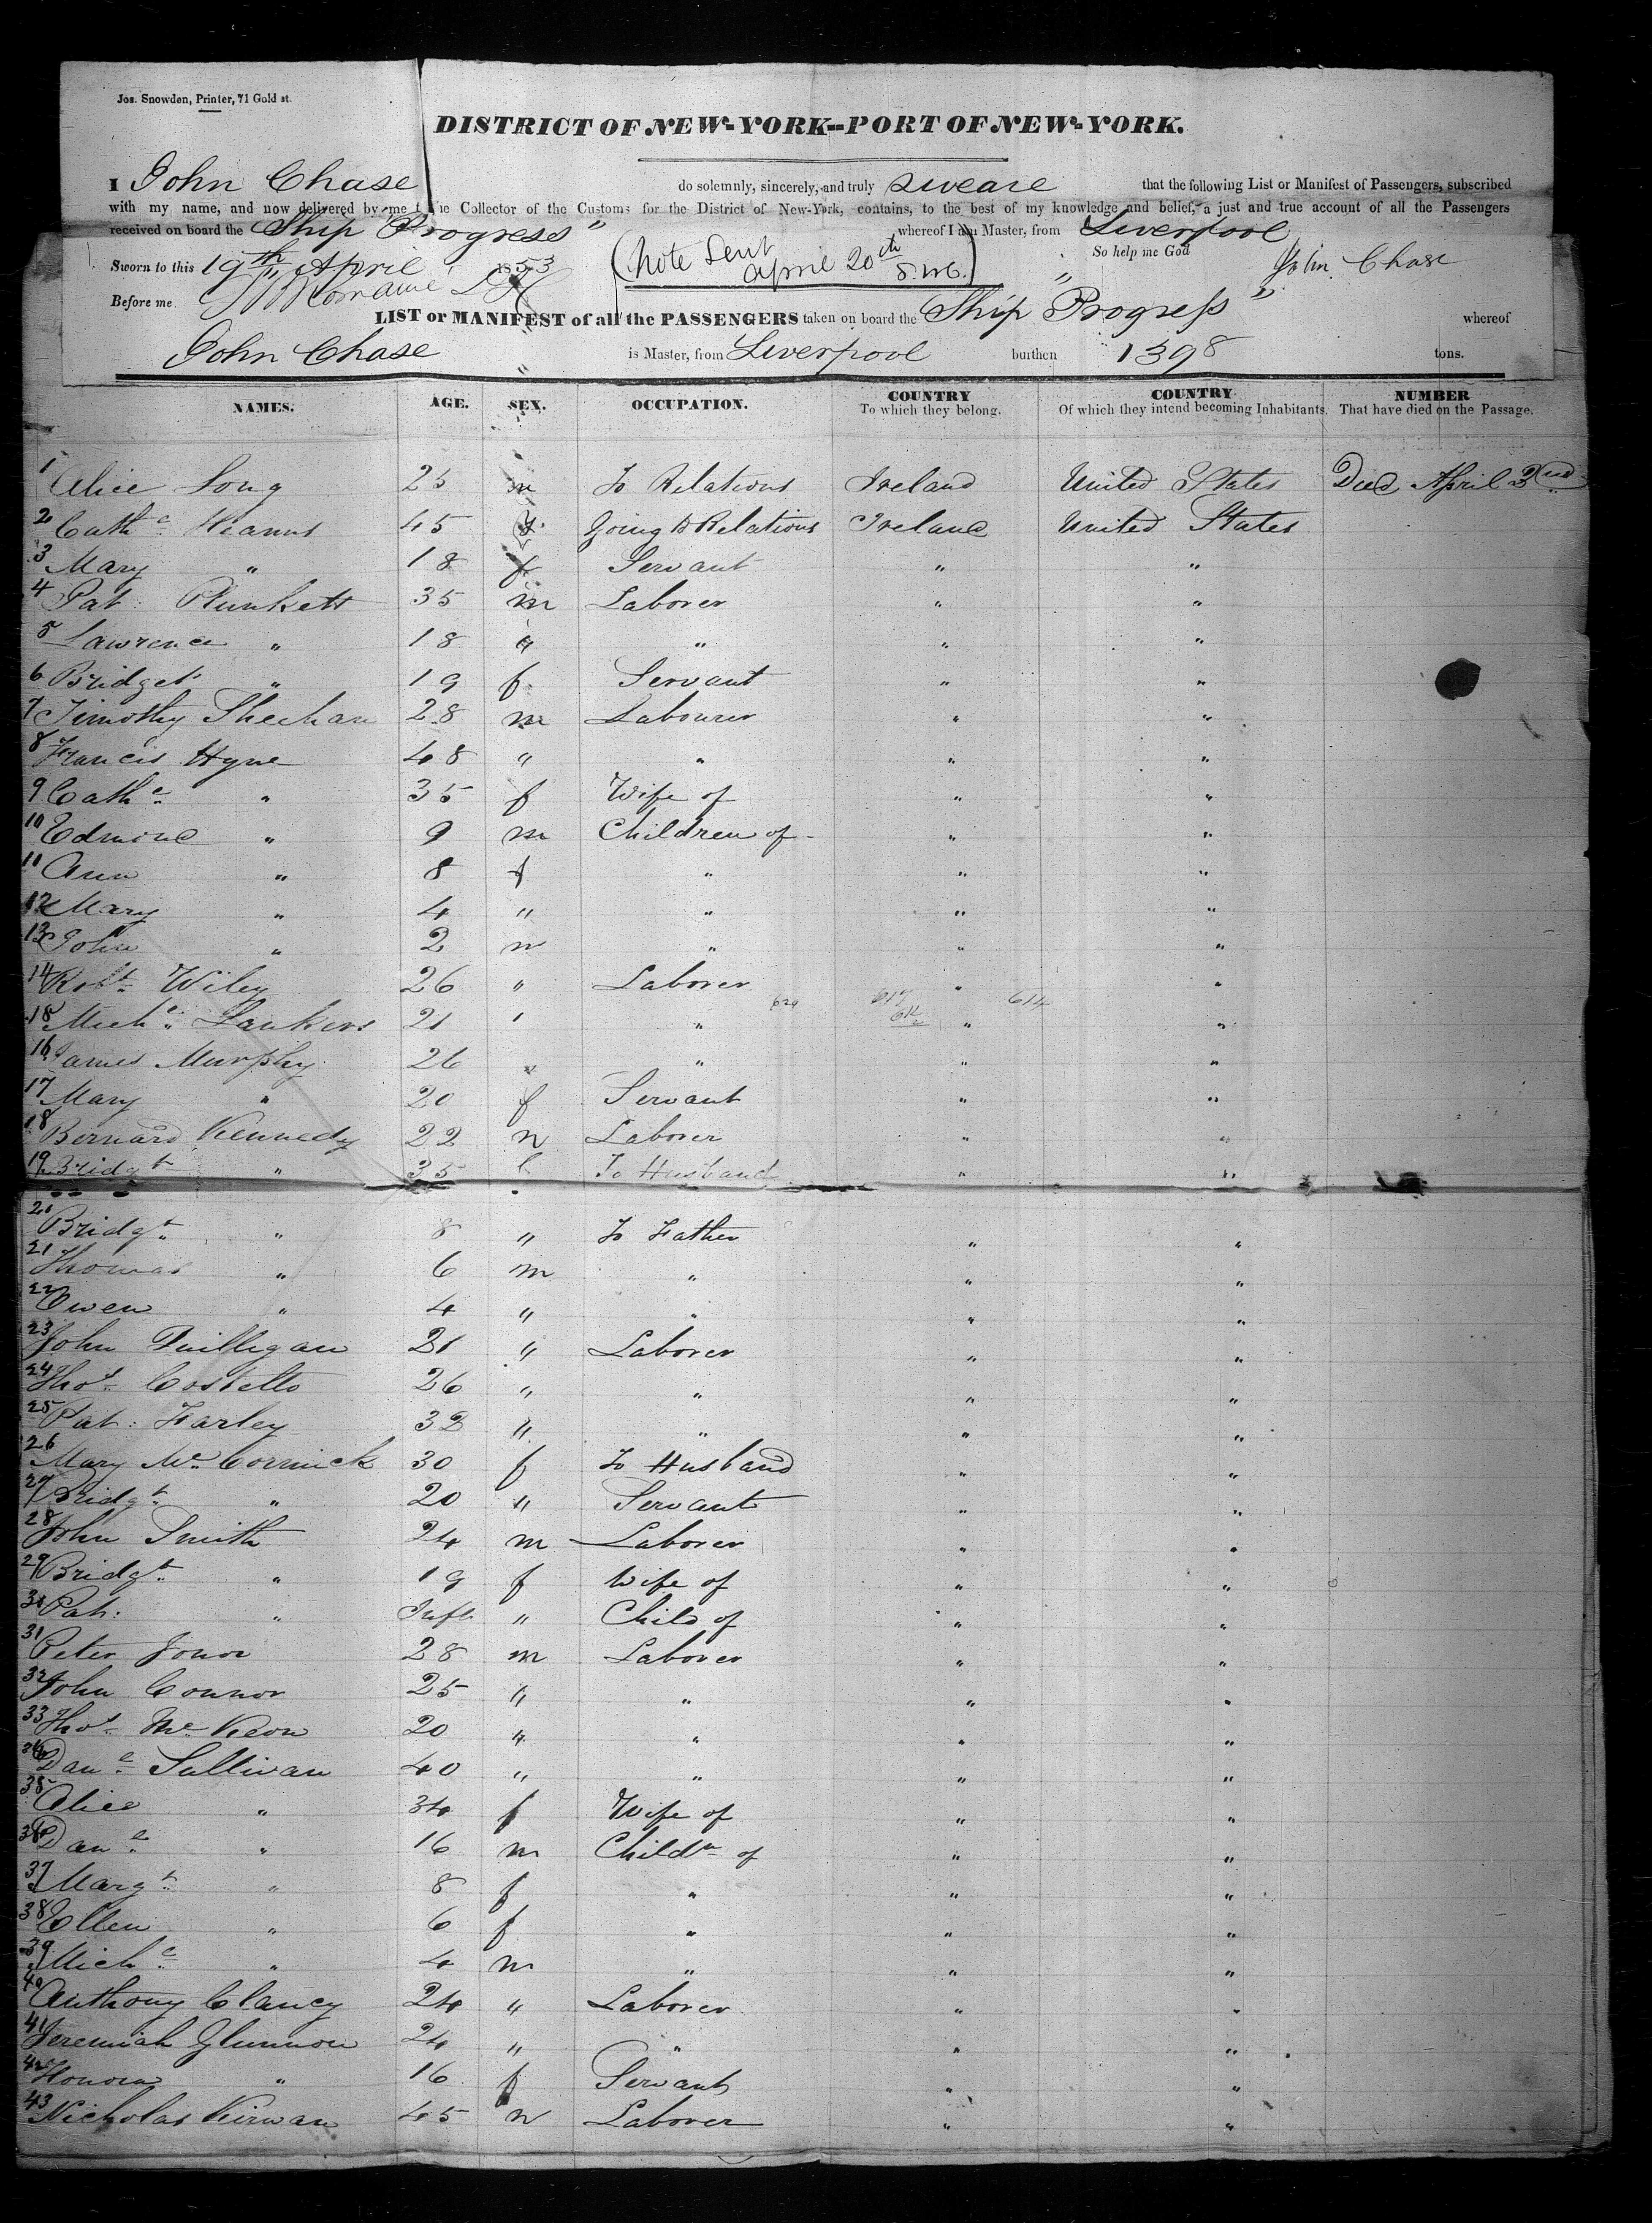 Jos. Snowden, Printer, 71 Gold st.
DISTRICT OF NEW-YORK--PORT OF NEW-YORK.
I John Chase do solemnly, sincerely, and truly sweare that the following List or Manifest of Passengers, subscribed
with my name, and now delivered by me t he Collector of the Customs for the District of New-York, contains, to the best of my knowledge and belief, a just and true account of all the Passengers
received on board the Ship "Progress" whereof I am Master, from Liverpool
Sworn to this 19th April 1853 (Note Sent So help me God John Chase
April 20th S.W.G.)
Before me
LIST or MANIFEST of all the PASSENGERS taken on board the Ship "Progress" whereof
John Chase is Master, from Liverpool burthen 1398 tons.
NAMES. AGE. SEX. OCCUPATION. COUNTRY To which they belong. COUNTRY Of which they intend becoming Inhabitants. NUMBER That have died on the Passage.
1 Alice Long 25 m To Relations Ireland United States Died April 2nd
2 Cathe Kianns 45 f Going to Relations Ireland United States
3 Mary " 18 f Servant " "
4 Pat: Plunkett 35 m Laborer " "
5 Lawrence " 18 " " " "
6 Bridget " 19 f Servant " "
7 Timothy Sheehan 28 m Labourer " "
8 Francis Hyne 48 " " " "
9 Cathe " 35 f Wife of " "
10 Edmond " 9 m Children of " "
11 Ann " 8 f " " "
12 Mary " 4 " " " "
13 John " 2 m " " "
14 Robt Wiley 26 " Laborer " "
629 617 612 614
15 Miche Lankers 21 " " " "
16 James Murphy 26 " " " "
17 Mary " 20 f Servant " "
18 Bernard Kennedy 22 m Laborer " "
19 Bridgt " 35 f To Husband " "
20 Bridgt " 8 " To Father " "
21 Thomas " 6 m " " "
22 Owen " 4 " " " "
23 John Quilligan 21 " Laborer " "
24 Thos Costello 26 " " " "
25 Pat: Farley 32 " " " "
26 Mary McCormick 30 f To Husband " "
27 Bridgt " 20 " Servant " "
28 John Smith 24 m Laborer " "
29 Bridgt " 19 f Wife of " "
30 Pat: " Inft " Child of " "
31 Peter Jonor 28 m Laborer " "
32 John Connor 25 " " " "
33 Thos McKeon 20 " " " "
34 Dane Sullivan 40 " " " "
35 Alice " 34 f Wife of " "
36 Dane " 16 m Childn of " "
37 Margt " 8 f " " "
38 Ellen " 6 f " " "
39 Miche " 4 m " " "
40 Anthony Clancy 24 " Laborer " "
41 Jeremiah Glunnon 24 " " " "
42 Honora " 16 f Servant " "
43 Nicholas Kirwan 45 m Laborer " "